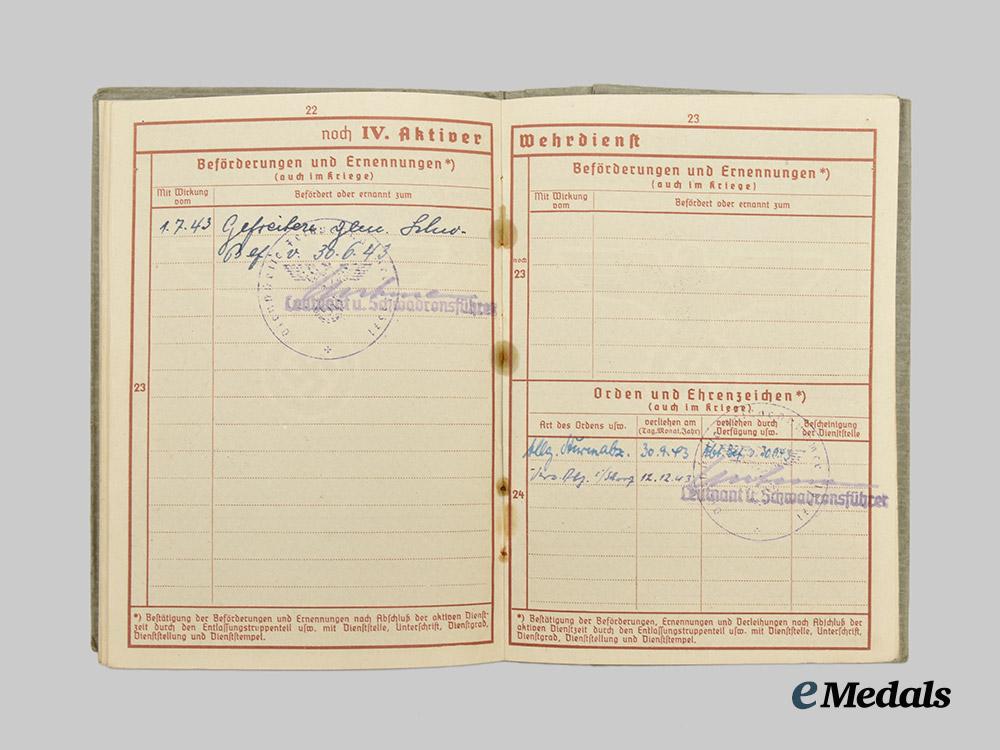 22
noch IV. Aktiver
Beförderungen und Ernennungen*)
(auch im Kriege)
Mit Wirkung vom
Befördert oder ernannt zum
1.7.43 Gefreiten gem. Schw.-
Bef. v. 30.6.43
Leutnant u. Schwadronsführer
23
*) Bestätigung der Beförderungen und Ernennungen nach Abschluß der aktiven Dienst-
zeit durch den Entlassungstruppenteil usw. mit Dienststelle, Unterschrift, Dienstgrad,
Dienststellung und Dienststempel.
23
Wehrdienst
Beförderungen und Ernennungen*)
(auch im Kriege)
Mit Wirkung vom
Befördert oder ernannt zum
noch
23
Orden und Ehrenzeichen*)
(auch im Kriege)
Art des Ordens usw.
verliehen am (Tag, Monat, Jahr)
verliehen durch Verfügung usw.
Bescheinigung der Dienststelle
Allg. Sturmabz. 30.9.43
12.12.43
Leutnant u. Schwadronsführer
24
*) Bestätigung der Beförderungen, Ernennungen und Verleihungen nach Abschluß der
aktiven Dienstzeit durch den Entlassungstruppenteil usw. mit Dienststelle, Unterschrift,
Dienstgrad, Dienststellung und Dienststempel.
eMedals